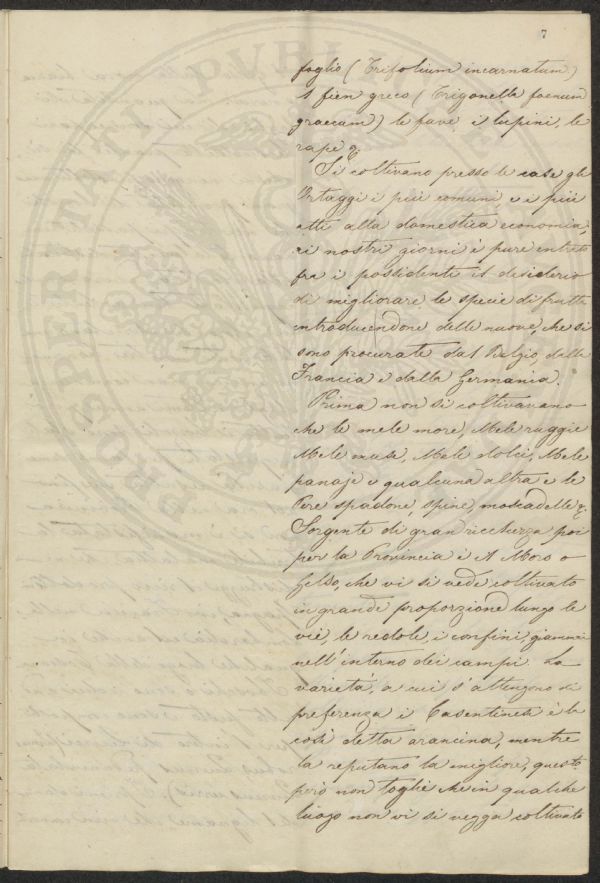 7
foglio (Trifolium incarnatum)
il fien greco (Trigonella foenum
graecum) le fave, i lupini, le
rape &
Si coltivano presso le case gli
Ortaggi i più comuni, e i più
atti alla domestica economia,
ai nostri giorni è pure entrato
fra i possidenti il desiderio
di migliorare le specie di frutta
introducendone delle nuove, che si
sono procurate dal Belgio, dalla
Francia e dalla Germania.
Prima non si coltivavano
che le mele more, Mele ruggie
Mele muse, Mele dolci, Mele
panaje e qualcuna altra e le
Pere spadone, spine, moscadelle &.
Sorgente di gran ricchezza poi
per la Provincia è il Moro o
Gelso, che vi si vede coltivato
in grande proporzione lungo le
vie, le redole, i confini, giammai
nell'interno dei campi. La
varietà, a cui s'attengono di
preferenza i Casentinesi è la
così detta arancina, mentre
la reputano la migliore, questo
però non toglie che in qualche
luogo non vi si vegga coltivato
PROSPERITATI PUBLICAE